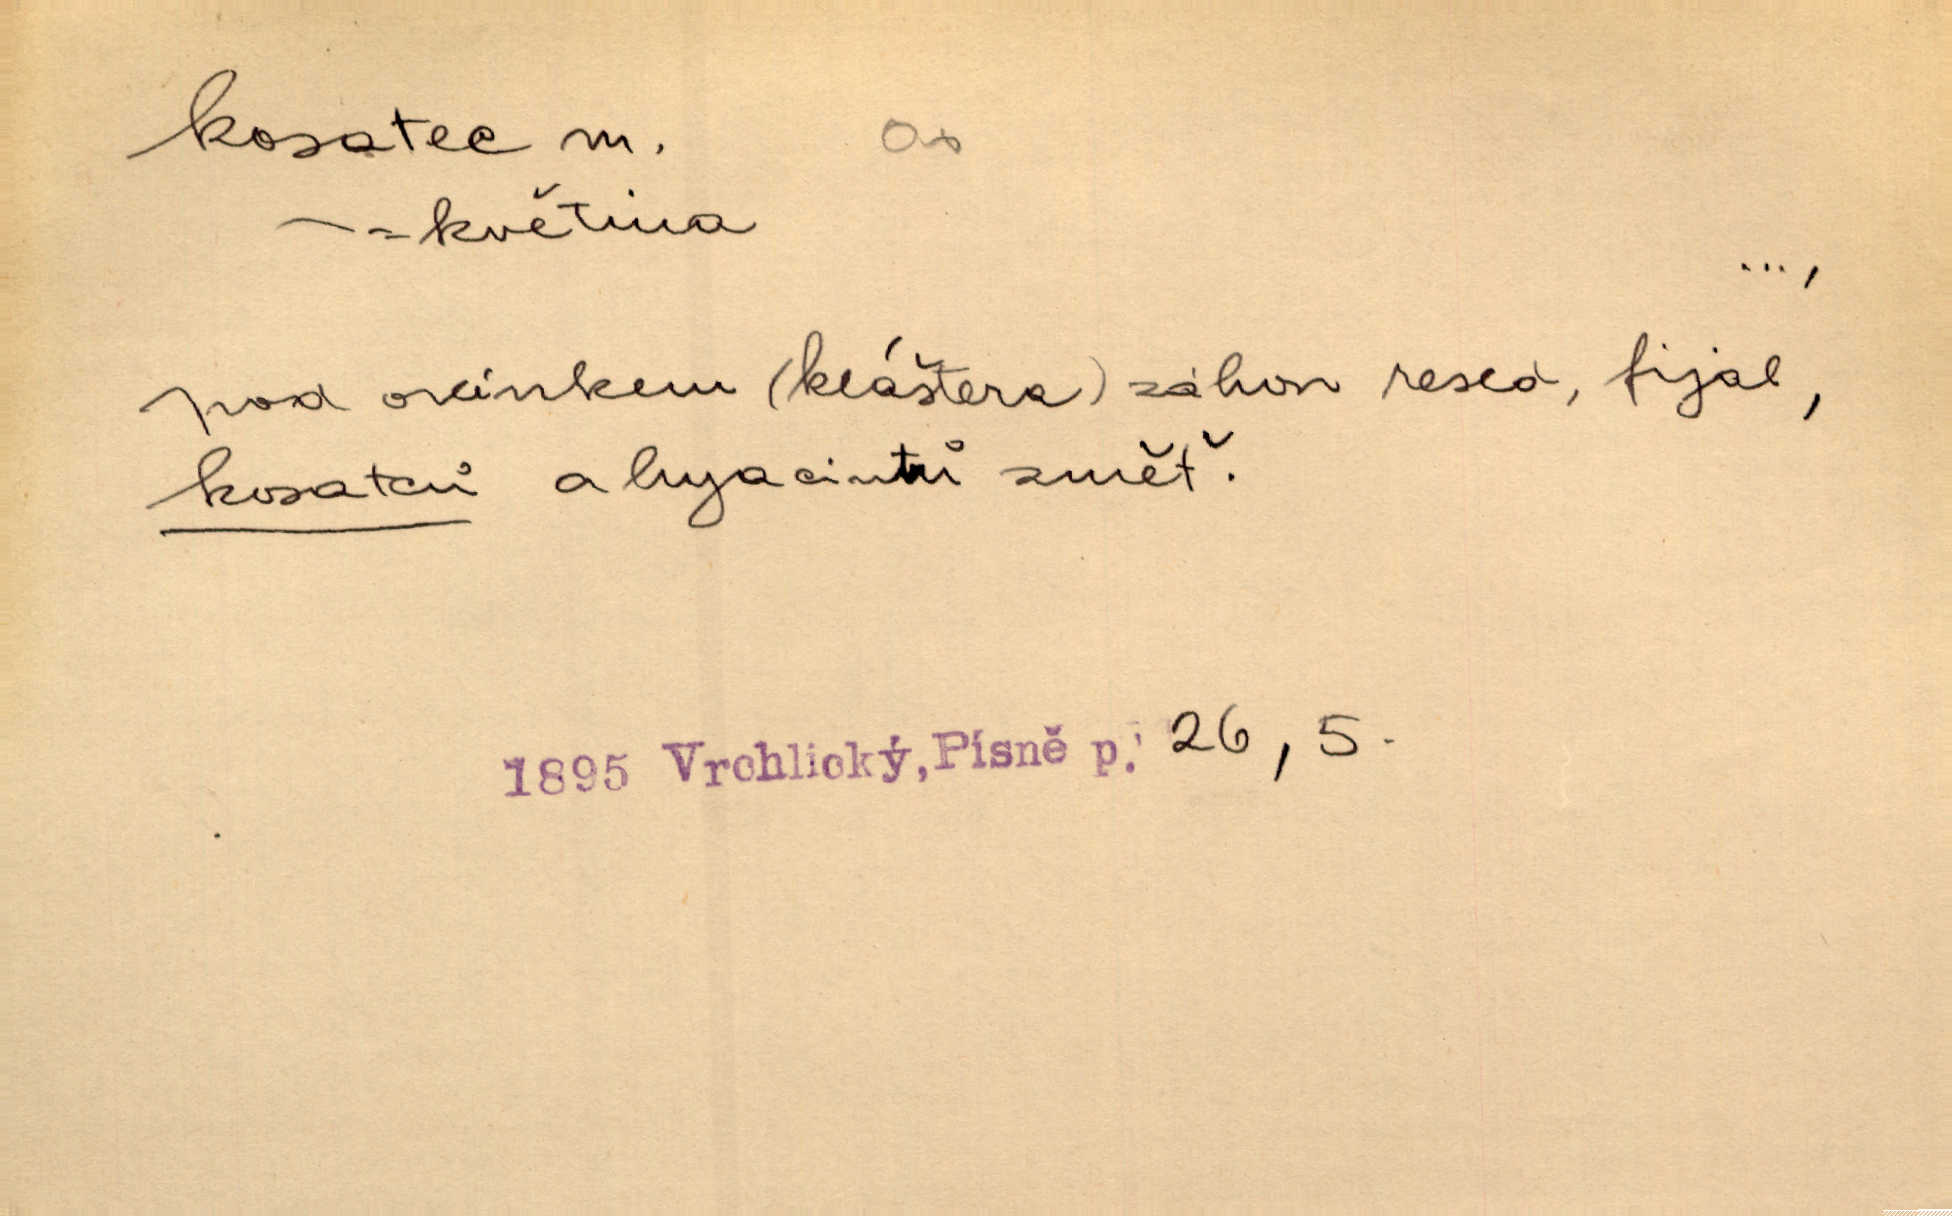 kosatec m.
~ = květina
...,
pod okénkem (kláštera) záhon resed, fijal,
kosatců a hyacintů změť.
1895 Vrchlický, Písně p. 26, 5.